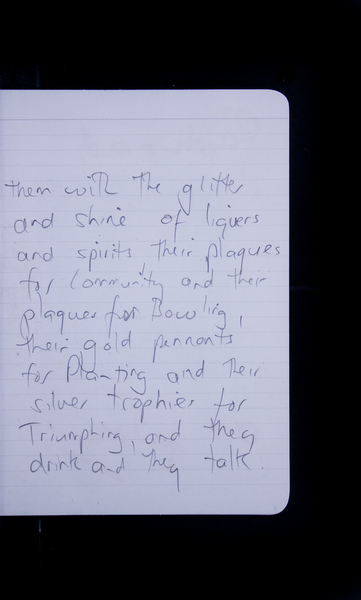 them with the glitter
and shine of liquers
and spirits, their plaques
for Community and their
plaques for Bowling,
their gold pennants
for Planting and their
silver trophies for
Triumphing, and they
drink and they talk.